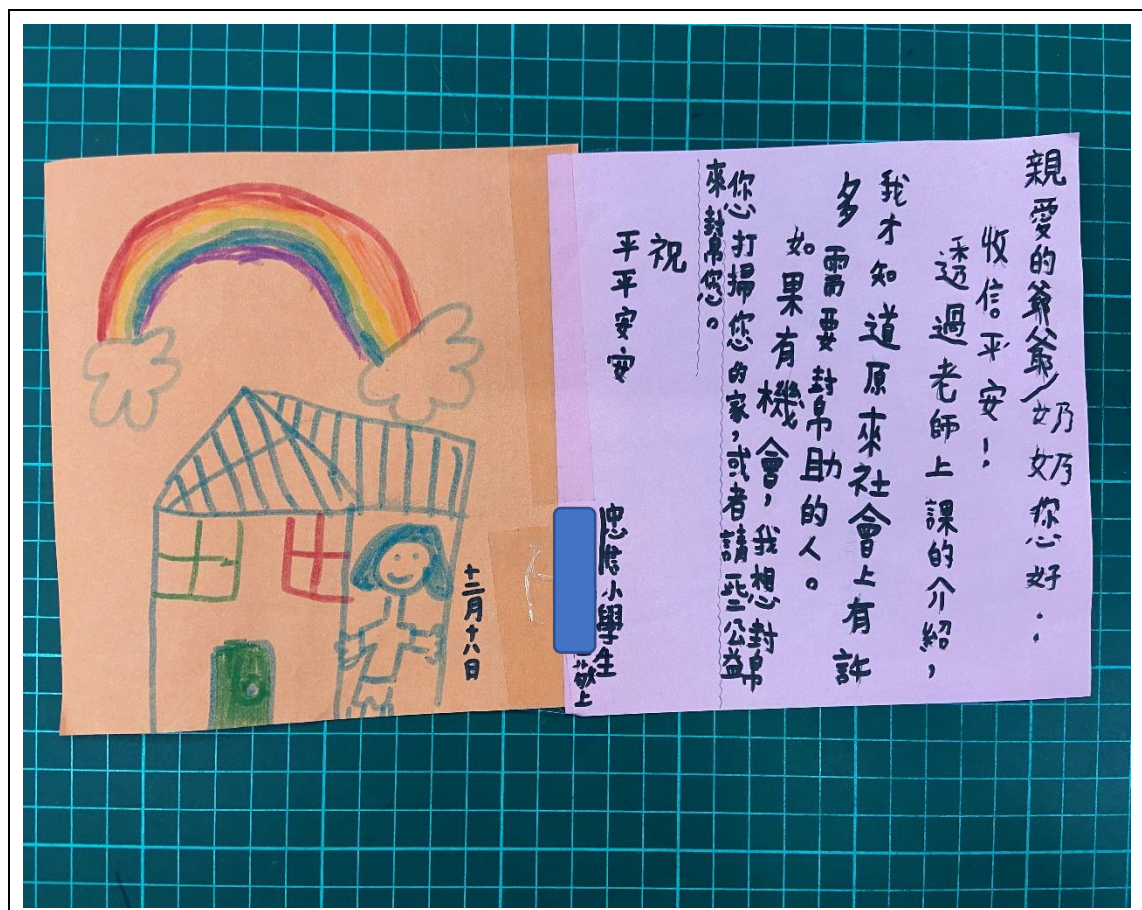 親愛的爺爺/奶奶您好：
收信平安！
透過老師上課的介紹，
我才知道原來社會上有許
多需要幫助的人。
如果有機會，我想幫
您打掃您的家，或者請些公益
來幫您。
祝
平平安安
小學生
敬上
十二月十八日